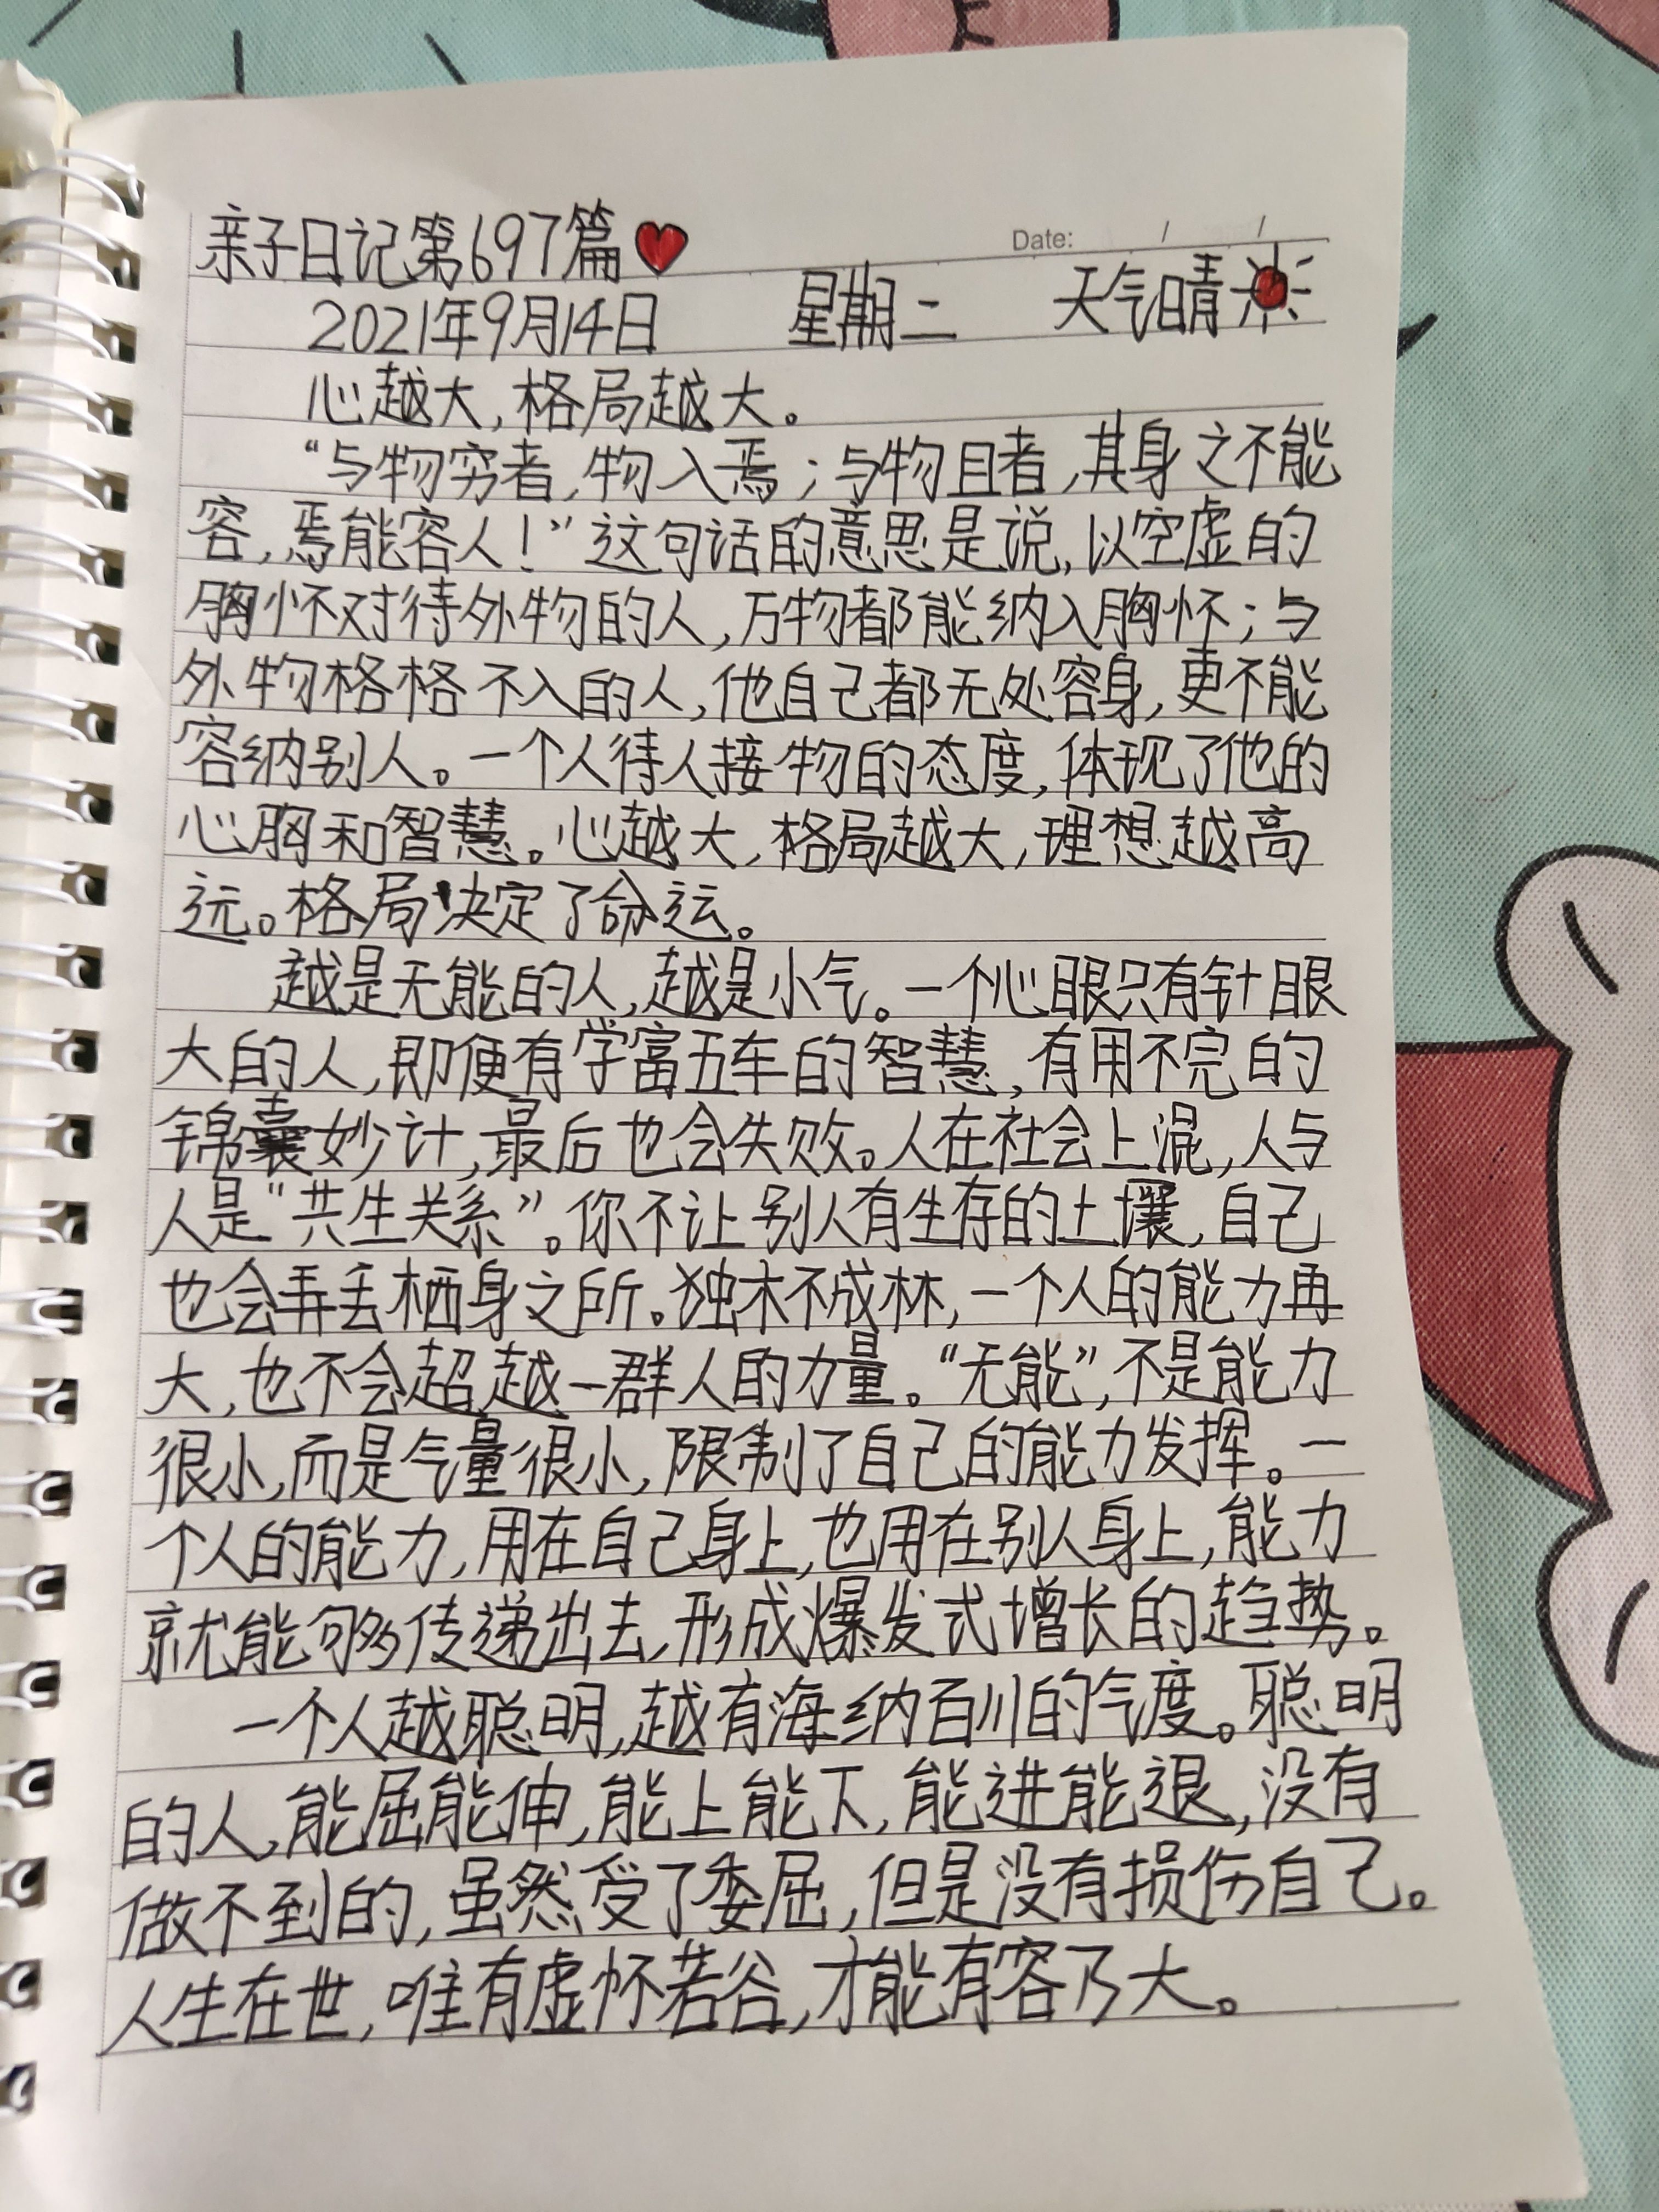 亲子日记第697篇
Date: / /
2021年9月14日 星期二 天气晴
心越大,格局越大。
“与物穷者,物入焉;与物且者,其身之不能
容,焉能容人!”这句话的意思是说,以空虚的
胸怀对待外物的人,万物都能纳入胸怀;与
外物格格不入的人,他自己都无处容身,更不能
容纳别人。一个人待人接物的态度,体现了他的
心胸和智慧。心越大,格局越大,理想越高
远。格局决定了命运。
越是无能的人,越是小气。一个心眼只有针眼
大的人,即便有学富五车的智慧,有用不完的
锦囊妙计,最后也会失败。人在社会上混,人与
人是“共生关系”。你不让别人有生存的土壤,自己
也会弄丢栖身之所。独木不成林,一个人的能力再
大,也不会超越一群人的力量。“无能”,不是能力
很小,而是气量很小,限制了自己的能力发挥。一
个人的能力,用在自己身上,也用在别人身上,能力
就能够传递出去,形成爆发式增长的趋势。
一个人越聪明,越有海纳百川的气度。聪明
的人,能屈能伸,能上能下,能进能退,没有
做不到的,虽然受了委屈,但是没有损伤自己。
人生在世,唯有虚怀若谷,才能有容乃大。